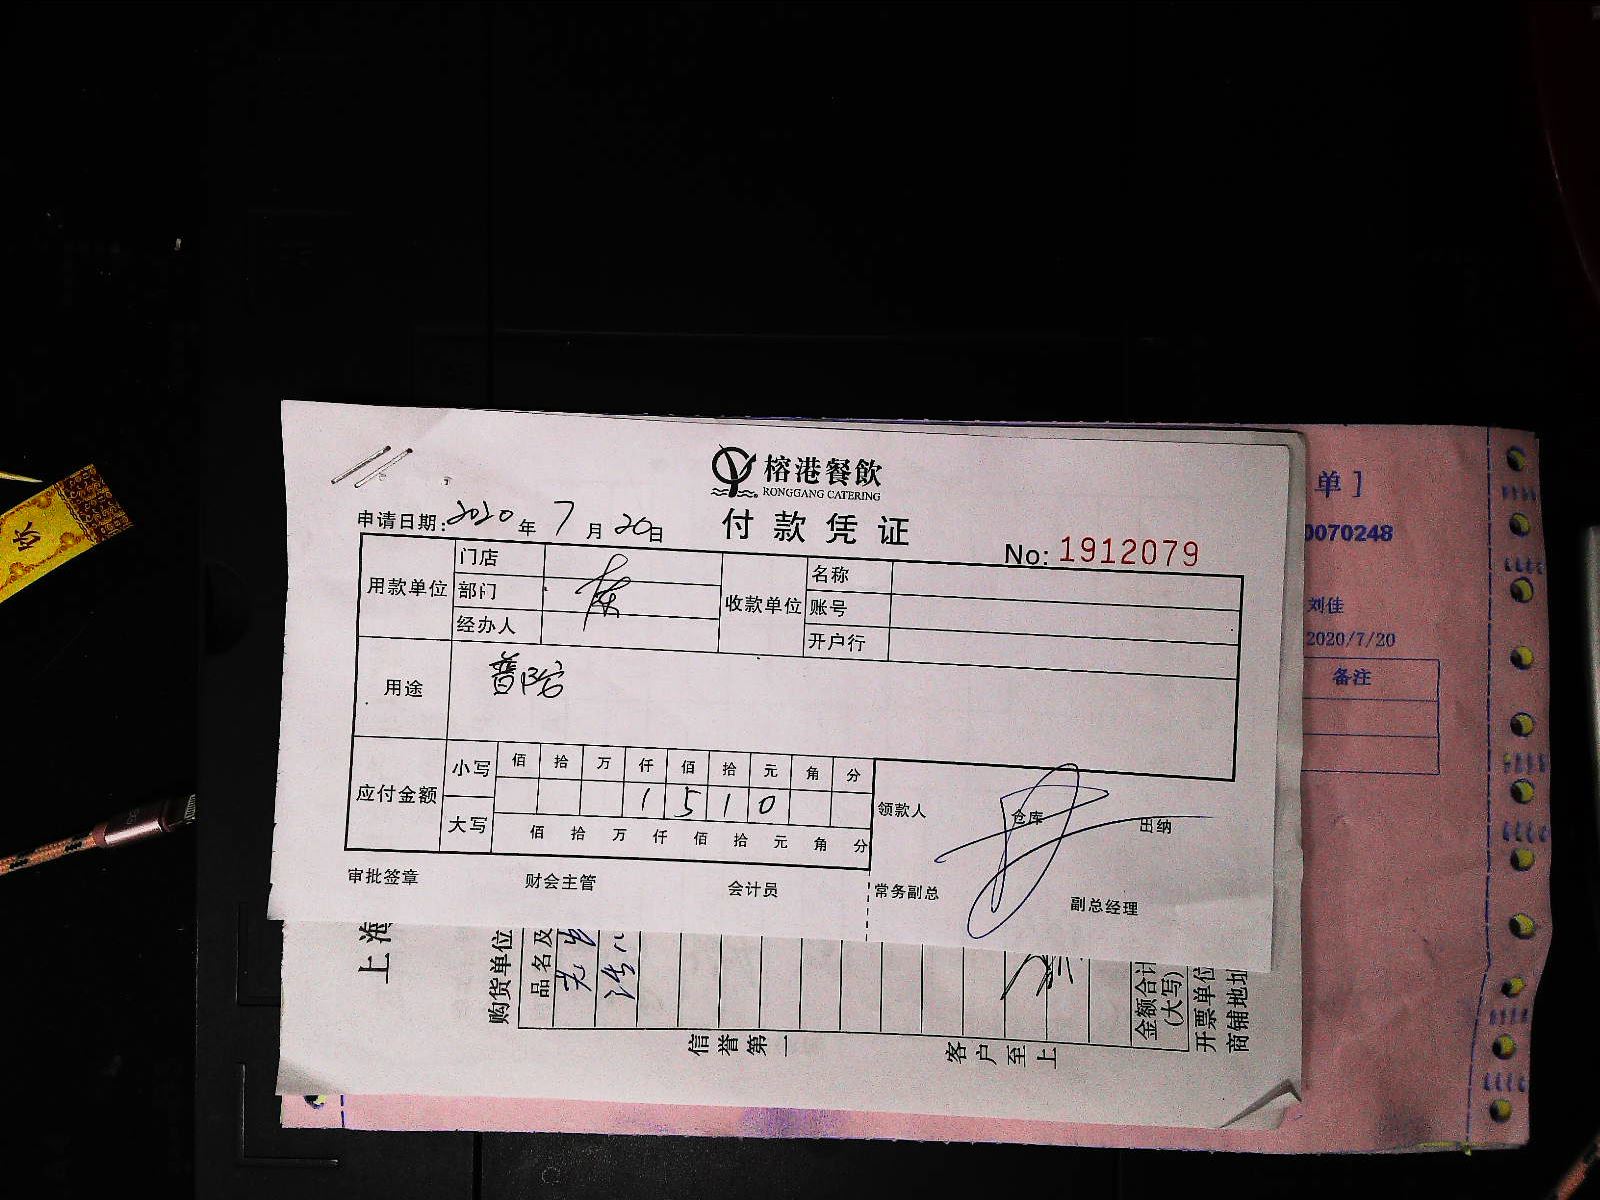 榕港餐飲
RONGGANG CATERING
付款凭证
申请日期:2020年7月20日
No: 1912079
用款单位 门店 收款单位 名称
部门 账号
经办人 开户行
用途
应付金额 小写 佰 拾 万 仟 佰 拾 元 角 分
1 5 1 0
大写 佰 拾 万 仟 佰 拾 元 角 分
领款人 仓库 出纳
审批签章 财会主管 会计员 常务副总 副总经理
单]
0070248
刘佳
2020/7/20
备注
上海
购货单位
品名及
金额合计
(大写)
开票单位
商铺地址
信誉第一 客户至上